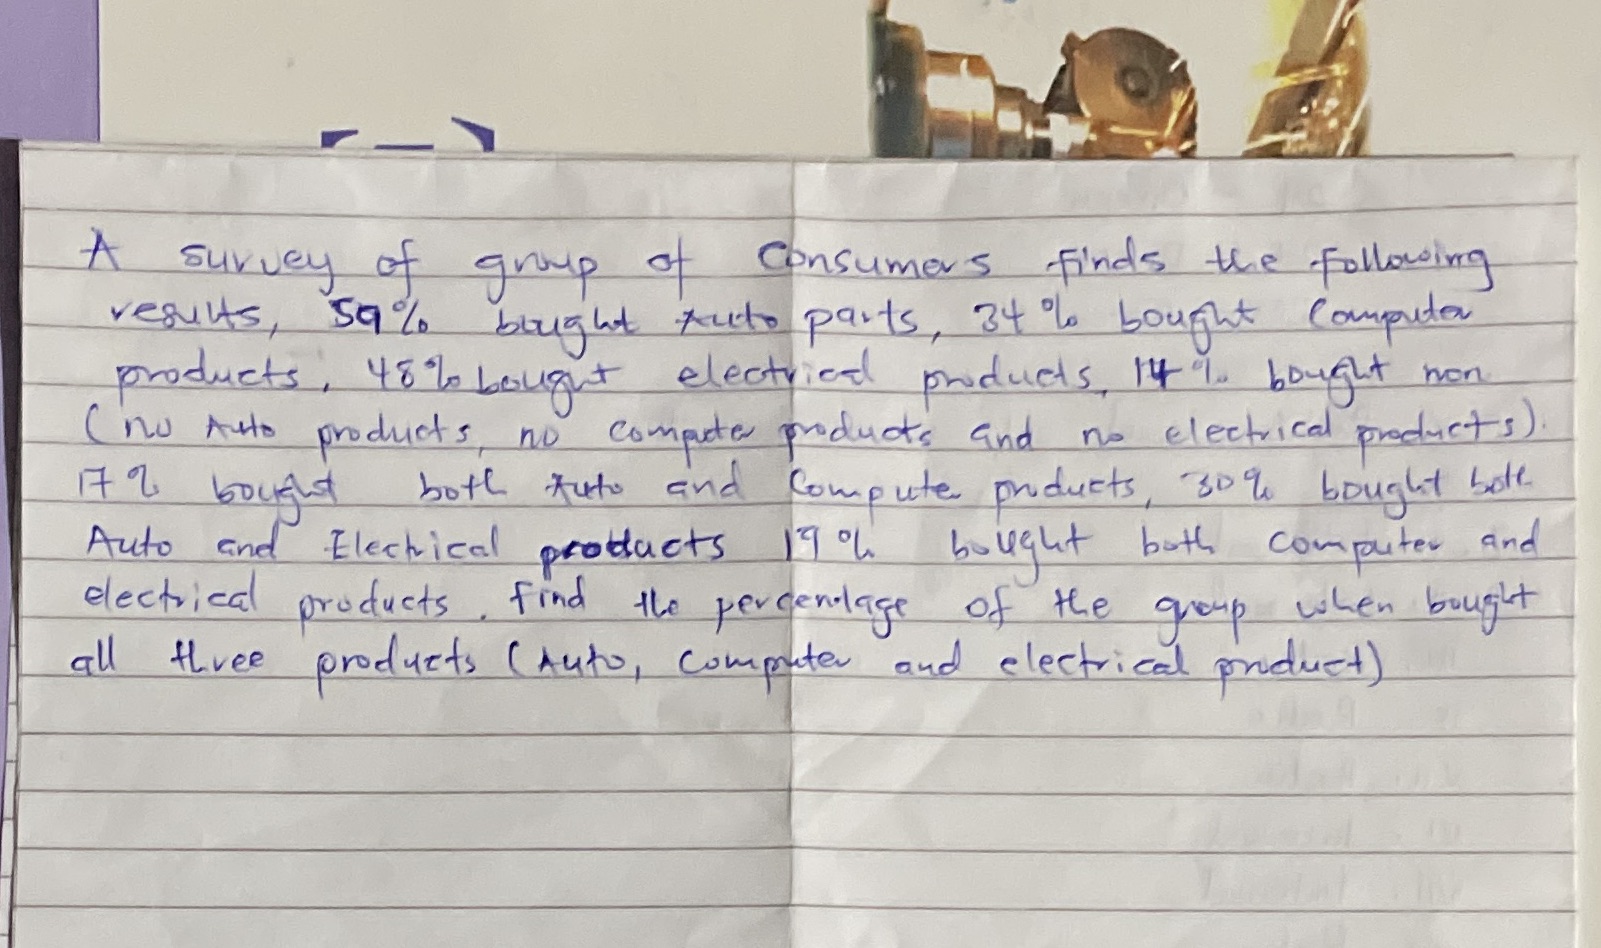 A survey of group of Consumers finds the following
results, 59% bought Auto parts, 34% bought Computer
products, 48% bought electrical products, 14% bought non
(no Auto products, no computer products and no electrical products).
17% bought both Auto and Compute products, 30% bought both
Auto and Electrical products 19% bought both computer and
electrical products. find the percentage of the group when bought
all three products (Auto, computer and electrical product)